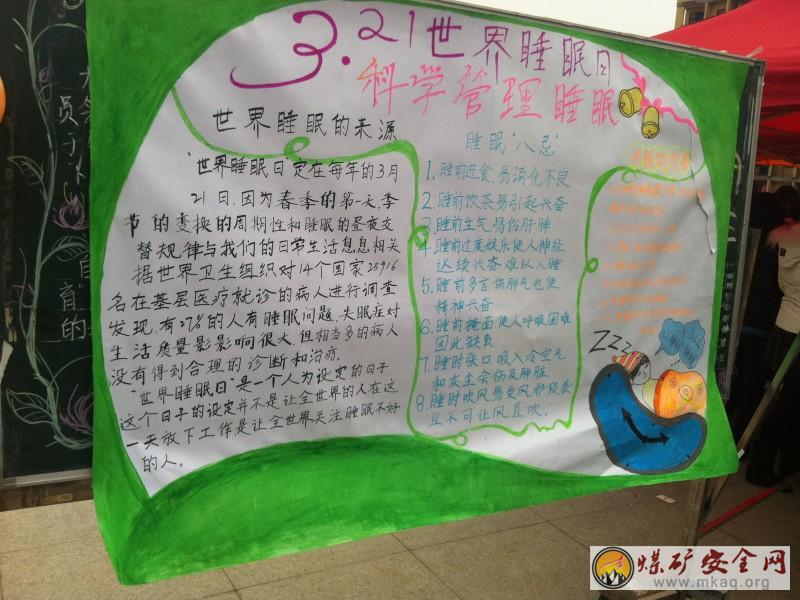 3.21世界睡眠日
科学管理睡眠
世界睡眠的来源
"世界睡眠日"定在每年的3月
21日.因为春季的第一天,季
节的变换的周期性和睡眠的昼夜交
替规律与我们的日常生活息息相关
据世界卫生组织对14个国家25916
名在基层医疗就诊的病人进行调查
发现,有27%的人有睡眠问题.失眠症对
生活质量影影响很大,但相当多的病人
没有得到合理的诊断和治疗.
"世界睡眠日"是一个人为设定的日子
这个日子的设定并不是让全世界的人在这
一天放下工作是让全世界关注睡眠不好
的人。
睡眠"八忌"
1.睡前进食.易消化不良
2.睡前饮茶易引起兴奋
3.睡前生气易伤肝肺
4.睡前过度娱乐使人神经
延续兴奋难以入睡
5.睡前多言伤肺气也使
精神兴奋
6.睡前掩面使人呼吸困难
因此缺氧
7.睡时张口吸入冷空气
和灰尘会伤及肺脏
8.睡时吹风易受风邪侵袭
且不可让风直吹.
ZZZ
员于
育"的
煤矿安全网
www.mkaq.org